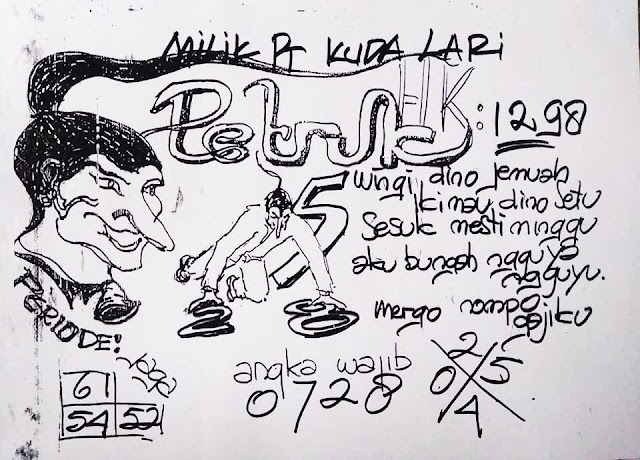 MILIK PT KUDA LARI
Petruk HK: 1298
5
wingi dino Jemuah
iki mau dino Setu
Sesuk mesti minggu
aku bungah ngguya
ngguyu.
mergo nompo
gajiku
PERIODE!
61
54 52
angka wajib
0728
2
0 5
4